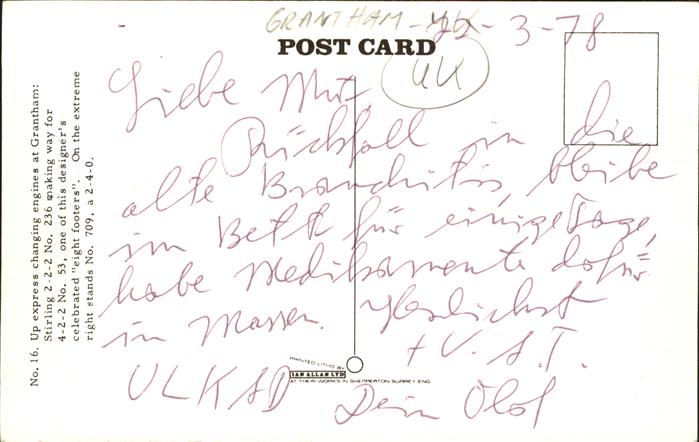 GRANTHAM - UK
22-3-78
POST CARD
UK
Liebe Mut,
Rückfall in die
alte Bronchitis, bleibe
im Bett für einige Tage,
habe Medikamente dafür
in Massen. Herzlichst
+ V. A. T.
ULKAD Dein Olof
No. 16. Up express changing engines at Grantham:
Stirling 2-2-2 No. 236 making way for
4-2-2 No. 53, one of this designer's
celebrated "eight footers". On the extreme
right stands No. 709, a 2-4-0.
PRINTED LITHO BY
IAN ALLAN LTD
AT THEIR WORKS IN SHEPPERTON SURREY ENG